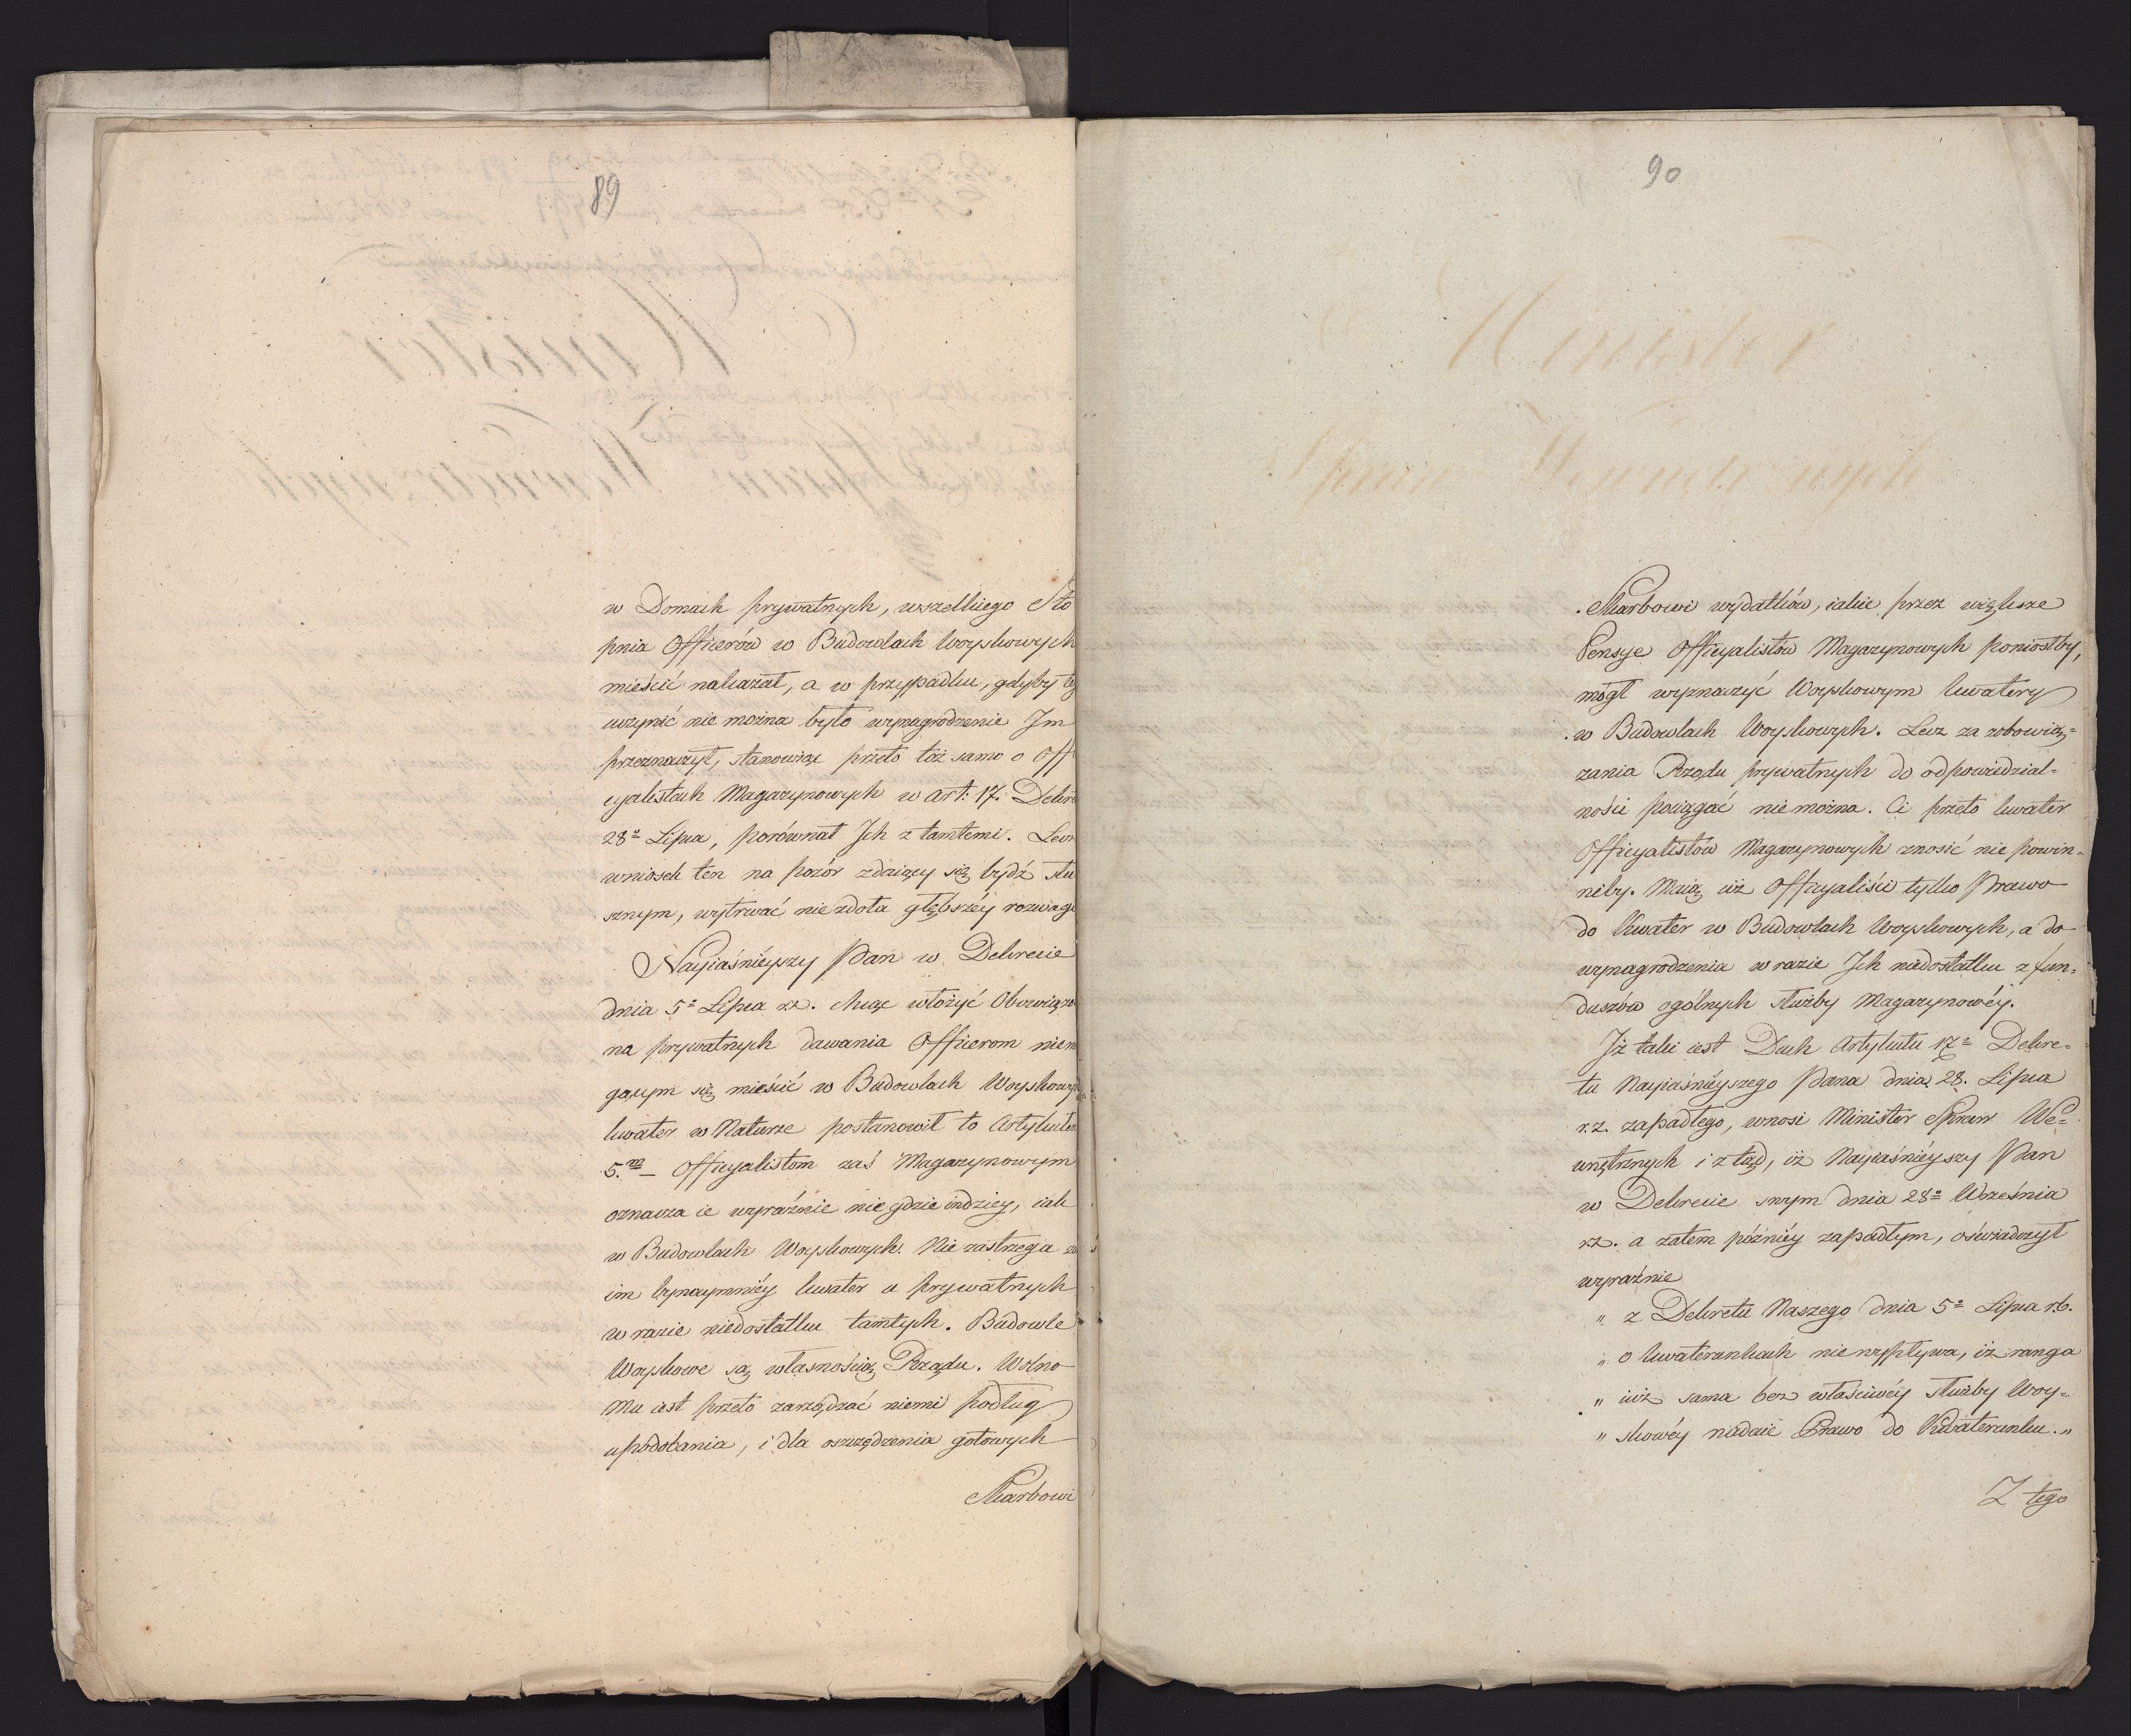 89
w Domach prywatnych, wszelkiego Sto
pnia Officerów w Budowlach Woyskowych
mieścić nakazał, a w przypadku, gdyby te
uczynić nie można było wynagrodzenie Im
przeznaczył, stanowiąc przeto toż samo o Offi
cyalistach Magazynowych w Art: 17. Dekre
28º Lipca, porównał Ich z tamtemi. Lecz
wniosek ten na pozór zdaiący się bydź słu
sznym, wytrwać nie zdoła głębszéy rozwagi
Nayiaśnieyszy Pan w Dekrecie
dnia 5º Lipca r.z. chcąc włożyć Obowiązek
na prywatnych dawania Officerom niem
gącym się mieścić w Budowlach Woyskowych
kwater w Naturze postanowił to Artykułem
5.m Officyalistom zaś Magazynowym
oznacza ie wyraźnie nie gdzie indziey, iak
w Budowlach Woyskowych. Nie zastrzega
im bynaymniéy kwater u prywatnych
w razie niedostatku tamtych. Budowle
Woyskowe są własnością Rządu. Wolno
Mu iest przeto zarządzać niemi podług
upodobania, i dla oszczędzenia gotowych
Skarbowi
90
Skarbowi wydatków, iakie przez większe
Pensye Officyalistów Magazynowych poniosłby,
mógł wyznaczyć Woyskowym kwatery
w Budowlach Woyskowych. Lecz za zobowią=
zania Rządu prywatnych do odpowiedzial=
ności pociągać nie można. Ci przeto kwater
Officyalistów Magazynowych znosić nie powin=
niby. Maią iuż Officyaliści tylko Prawo
do Kwater w Budowlach Woyskowych, a do
wynagrodzenia w razie Ich niedostatku z fun=
duszów ogólnych służby Magazynowéy.
Iż taki iest Duch Artykułu 17º Dekre=
tu Nayiaśniéyszego Pana dnia 28. Lipca
r.z. zapadłego, wnosi Minister Spraw We=
wnętrznych i z tąd, iż Nayiaśniéyszy Pan
w Dekrecie swym dnia 28º Września
r.z. a zatem późniéy zapadłym, oświadczył
wyraźnie
„ z Dekretu Naszego dnia 5º Lipca r.b.
„ o kwaterunkach nie wypływa, iż ranga
„ iuż sama bez właściwéy służby Woy=
„ skowéy nadaie Prawo do Kwaterunku. „
Z tego